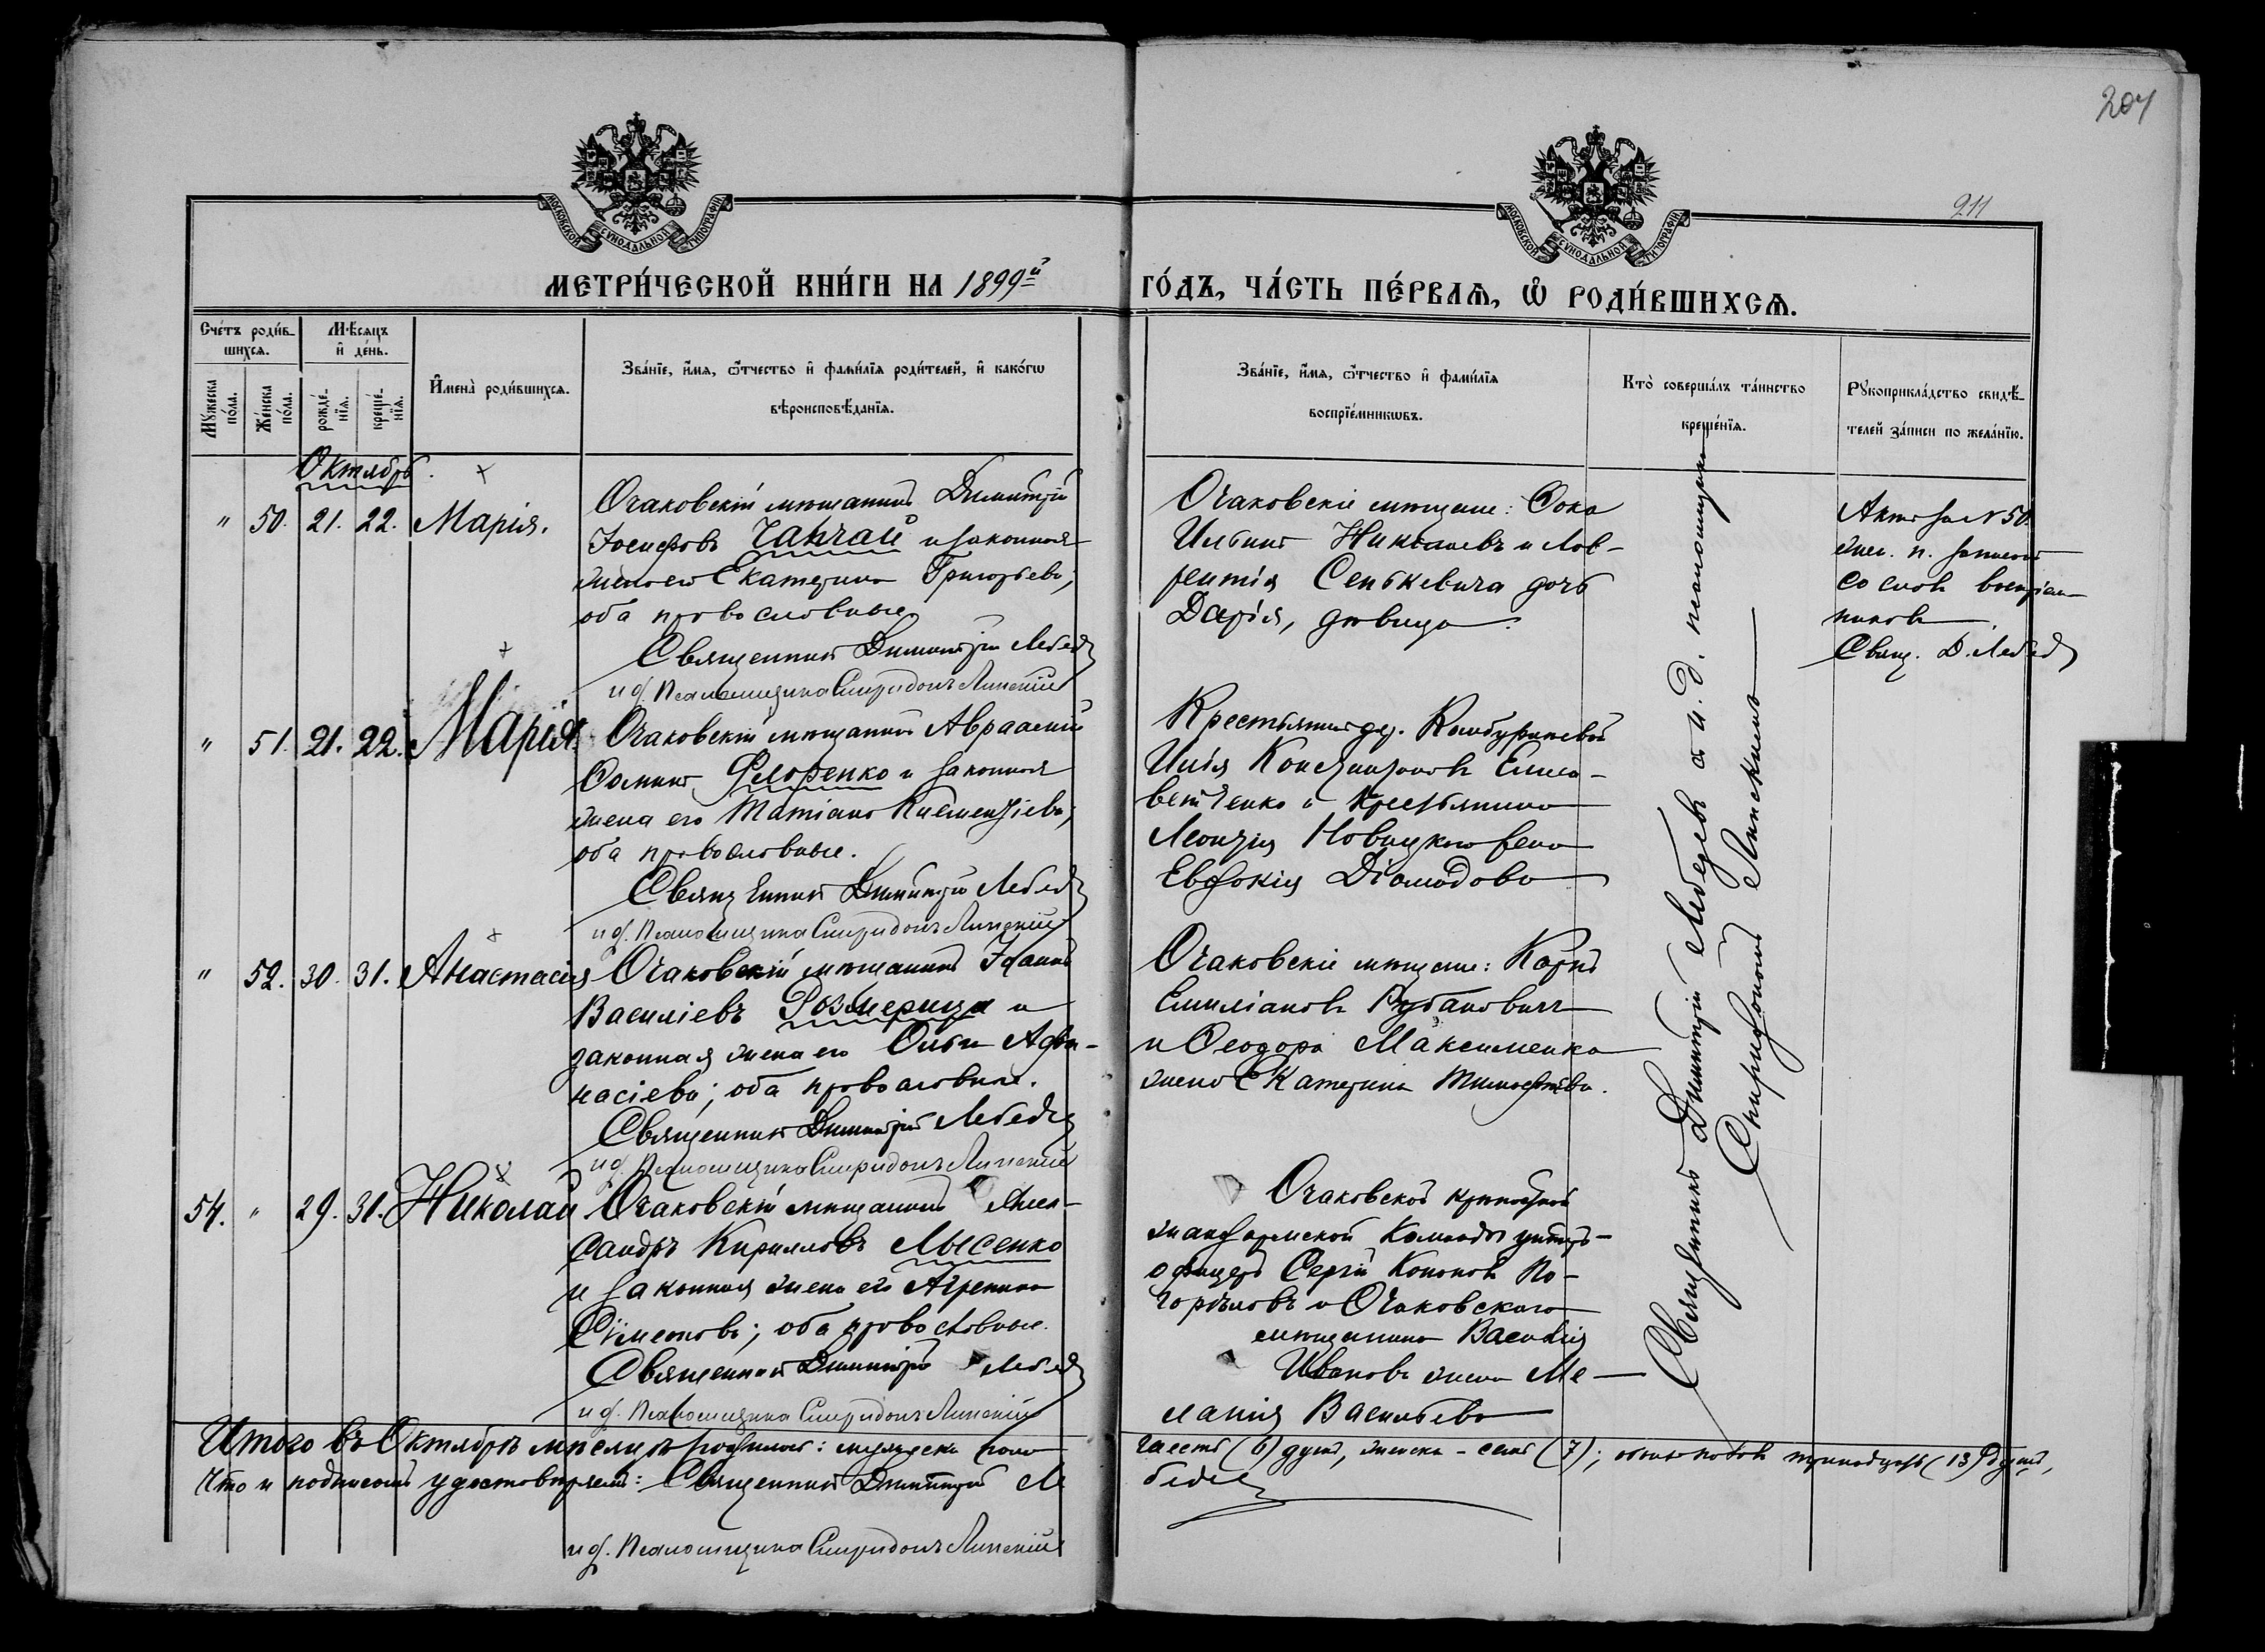 204
211
МОСКОВСКОЙ СѴНОДАЛЬНОЙ ТИПОГРАФІИ
МОСКОВСКОЙ СѴНОДАЛЬНОЙ ТИПОГРАФІИ
МЕТРИ́ЧЕСКОЙ КНИ́ГИ НА 1899й
ГО́ДЪ, ЧА́СТЬ ПЕ́РВАѦ, Ѡ҆ РОДИ́ВШИХСѦ.
Сче́тъ роди́в-
шихсѧ.
Мꙋ́жеска по́ла.
Же́нска по́ла.
Мѣ́сѧцъ
и҆ де́нь.
рожде́-
нїѧ.
креще́-
нїѧ.
И҆мена̀ роди́вшихсѧ.
Зва́нїе, и҆́мѧ, ѻ҆́тчество и҆ фами́лїѧ роди́телей, и҆ како́гѡ
вѣроисповѣ́данїѧ.
Зва́нїе, и҆́мѧ, ѻ҆́тчество и҆ фами́лїѧ
воспрїе́мникѡвъ.
Кто̀ соверша́лъ та́инство
креще́нїѧ.
Рꙋкоприкла́дство свидѣ́-
телей за́писи по жела́нїю.
Октябрь.
" 50. 21. 22. Марія.
Очаковскій мѣщанинъ Димитрій
Іосифовъ Чапчай и законная
жена его Екатерина Григорьева;
оба православные.
Священникъ Димитрій Лебедев
и д. Псаломщика Спиридонъ Липскій
Очаковскіе мѣщане: Ѳока
Ильинъ Николаевъ и Лав-
рентія Сенькевича дочь
Дарія, дѣвица.
Актъ за № 50
со словъ воспріем-
никовъ
Свящ. Д. Лебедев
" 51. 21. 22. Марія.
Очаковскій мѣщанинъ Авраамій
Ѳоминъ Флоренко и законная
жена его Татіана Климентіева;
оба православные.
Священникъ Димитрій Лебедев
и д. Псаломщика Спиридонъ Липскій
Крестьянинъ дер.
Илія Константиновъ Елиса-
ветченко и крестьянина
Леонтія Новицкого жена
Евдокія Діомидова
" 52. 30. 31. Анастасія
Очаковскій мѣщанинъ Іоаннъ
Василіевъ Розмерица и
законная жена его Ольга Афа-
насіева; оба православные.
Священникъ Димитрій Лебедев
и д. Псаломщика Спиридонъ Липскій
Очаковскіе мѣщане: Карпъ
Емиліановъ Рубановичъ
и Ѳеодора Максименка
жена Екатерина Тимофѣева.
54. " 29. 31. Николай
Очаковскій мѣщанинъ Алек-
сандръ Кирилловъ Лысенко
и законная жена его Агрипина
Сѵмеонова; оба православные.
Священникъ Димитрій Лебедев
и д. Псаломщика Спиридонъ Липскій
Очаковской крѣпостной
жандармской команды унтеръ-
офицеръ Сергій Кононовъ По-
горѣловъ и Очаковского
мѣщанина Василія
Иванова жена Ме-
ланія Васильева
Священникъ Димитрій Лебедевъ съ и. д. псаломщика
Спиридономъ Липскимъ
Итого въ Октябрѣ мѣсяцѣ родилось: мужеска пола
шесть (6) душъ, женска - семь (7); обоихъ половъ тринадцать (13) душъ,
Что и подписомъ удостовѣряемъ: Священникъ Димитрій Ле
бедев
и д. Псаломщика Спиридонъ Липскій